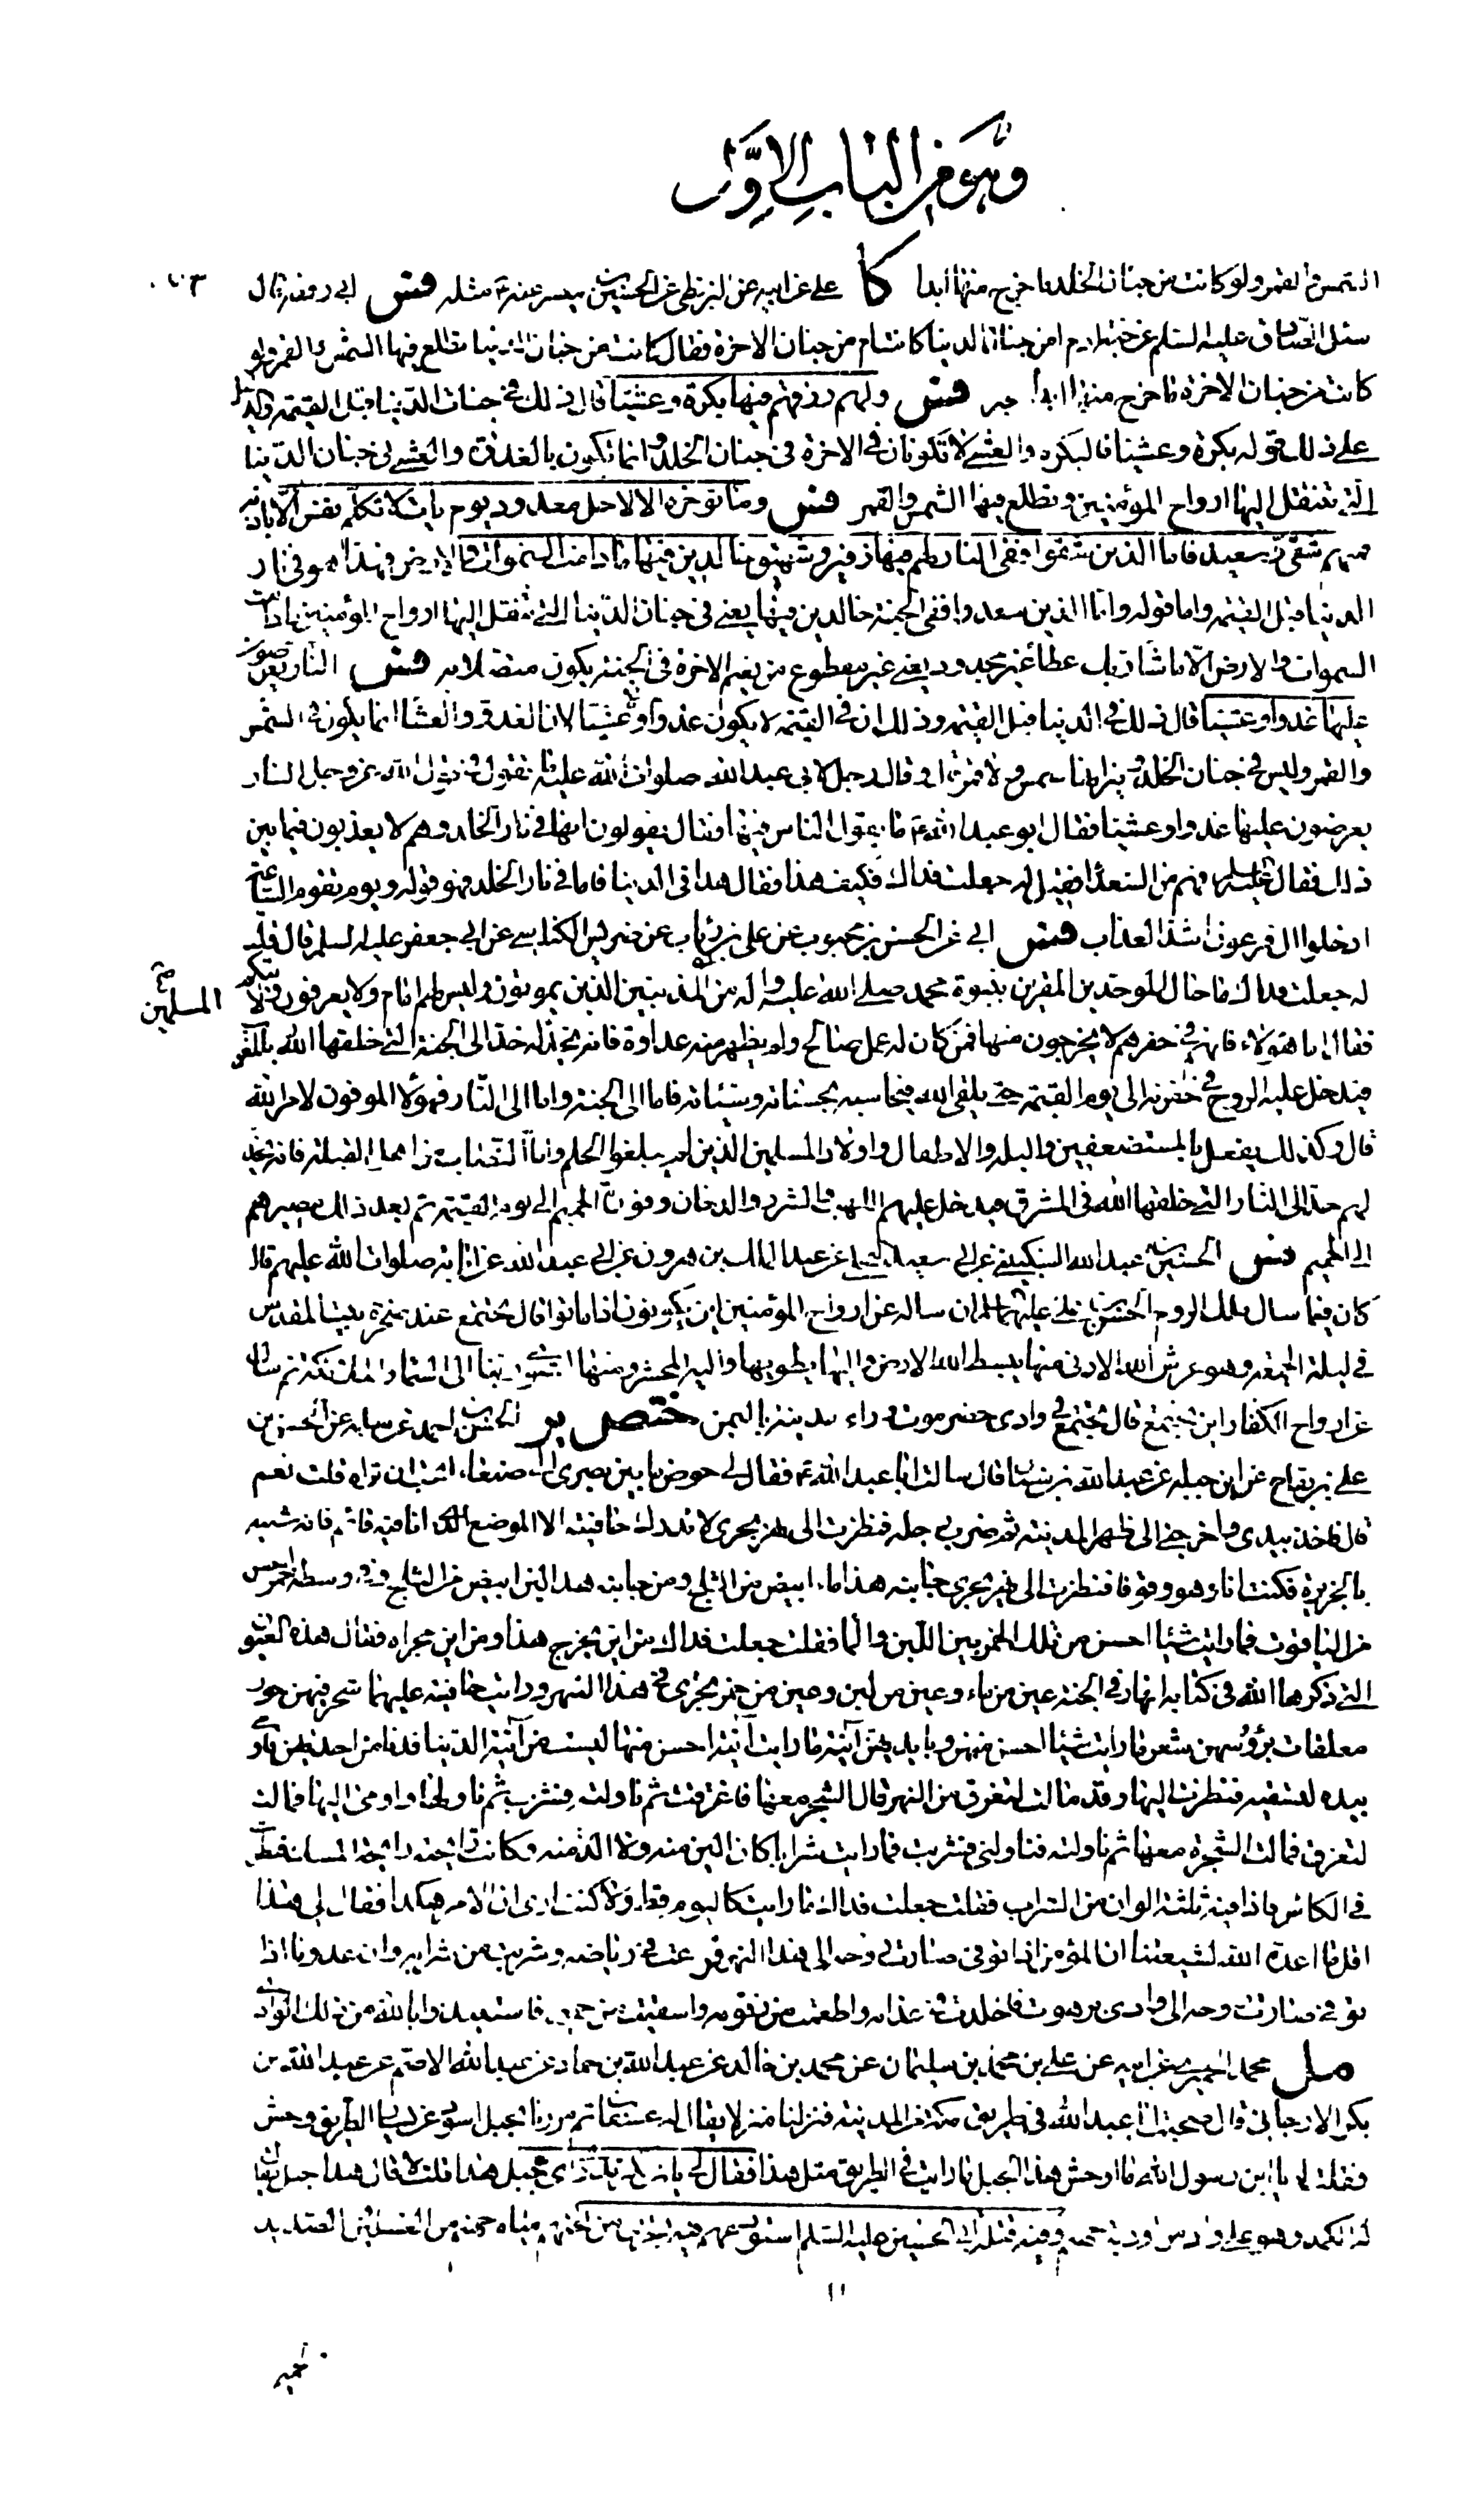 وهو من الباب الاول
الشمس والقمر ولو كانت من جنان الخلد ما خرج منها ابدا كا علي عن ابيه عن البزنطي عن الحسين بن ميسر عنه ع مثله فس ابي رفعه قال
سئل الصادق عليه السلم عن جنة ادم امن جنان الدنيا كانت ام من جنان الاخرة فقال كانت من جنان الدنيا تطلع فيها الشمس والقمر ولو
كانت من جنان الاخرة ما خرج منها ابدا فس ولهم رزقهم فيها بكرة وعشيا قال ذلك في جنات الدنيا قبل القيمة والدليل
على ذلك قوله بكرة وعشيا فالبكرة والعشي لا تكونان في الاخرة في جنان الخلد وانما تكون بالغداة والعشي في جنان الدنيا
التي تنتقل اليها ارواح المؤمنين وتطلع فيها الشمس والقمر فس وما نؤخره الا لاجل معدود يوم يات لا تكلم نفس الا باذنه
فمنهم شقي وسعيد فاما الذين شقوا ففي النار لهم فيها زفير وشهيق خالدين فيها ما دامت السموات والارض فهذا هو في نار
الدنيا قبل القيمة واما قوله واما الذين سعدوا ففي الجنة خالدين فيها يعني في جنان الدنيا التي تنقل اليها ارواح المؤمنين ما دامت
السموات والارض الا ما شاء ربك عطاء غير مجذوذ يعني غير مقطوع من نعيم الاخرة في الجنة يكون متصلا به فس النار يعرضون
عليها غدوا وعشيا قال ذلك في الدنيا قبل القيمة وذلك ان في القيمة لا يكون غدوا وعشيا لان الغدو والعشا انما يكون في الشمس
والقمر وليس في جنان الخلد ونيرانها شمس ولا قمر قال وقال رجل لابي عبد الله صلوات الله عليه ما تقول في قول الله عز وجل النار
يعرضون عليها غدوا وعشيا فقال ابو عبد الله ع ما يقول الناس فيها فقال يقولون انها في نار الخلد وهم لا يعذبون فيما بين
ذلك فقال عليه السلم فهم من السعداء فقيل له جعلت فداك فكيف هذا فقال هذا في الدنيا فاما في نار الخلد فهو قوله ويوم تقوم الساعة
ادخلوا ال فرعون اشد العذاب فس ابي عن الحسن بن محبوب عن علي بن رئاب عن ضريس الكناسي عن ابي جعفر عليه السلم قال قلت
له جعلت فداك ما حال الموحدين المقرين بنبوة محمد صلى الله عليه واله من المسلمين المذنبين الذين يموتون وليس لهم امام ولا يعرفون ولايتكم
فقال اما هؤلاء فانهم في حفرهم لا يخرجون منها فمن كان له عمل صالح ولم يظهر منه عداوة فانه يخد له خدا الى الجنة التي خلقها الله بالمغرب
فيدخل عليه الروح في حفرته الى يوم القيمة حتى يلقى الله فيحاسبه بحسناته وسيئاته فاما الى الجنة واما الى النار فهؤلاء الموقوفون لامر الله
قال وكذلك يفعل بالمستضعفين والبله والاطفال واولاد المسلمين الذين لم يبلغوا الحلم واما النصاب من اهل القبلة فانه يخد
لهم خدا الى النار التي خلقها الله في المشرق فيدخل عليهم اللهب والشرر والدخان وفورة الحميم الى يوم القيمة ثم بعد ذلك مصيرهم
الى الجحيم فس الحسين بن عبد الله السكيني عن ابي سعيد البجلي عن عبد الملك بن هرون عن ابي عبد الله عن ابائه صلوات الله عليهم قال
كان فيما سال ملك الروم الحسن بن علي عليهما السلم ان ساله عن ارواح المؤمنين اين يكونون اذا ماتوا قال تجتمع عند صخرة بيت المقدس
في ليلة الجمعة وهو عرش الله الادنى منها يبسط الله الارض واليها يطويها واليه المحشر ومنها استوى ربنا الى السماء والملائكة ثم ساله
عن ارواح الكفار اين تجتمع قال تجتمع في وادي حضرموت وراء مدينة باليمن ختص ير الحسن بن احمد عن سلمة عن الحسن بن
علي بن بقاح عن ابن جبلة عن عبد الله بن سنان قال سالت ابا عبد الله ع فقال لي حوض ما بين بصرى الى صنعاء اتحب ان تراه قلت نعم
قال فاخذ بيدي واخرجني الى ظهر المدينة ثم ضرب برجله فنظرت الى نهر يجري لا ندرك حافتيه الا الموضع الذي انا فيه قائم فانه شبيه
بالجزيرة فكنت انا وهو وقوفا فنظرت الى نهر يجري جانبه هذا ماء ابيض من الثلج ومن جانبه هذا لبن ابيض من الثلج وفي وسطه خمر احسن
من الياقوت فما رايت شيئا احسن من تلك الخمر بين اللبن والماء فقلت جعلت فداك من اين يخرج هذا ومن اين مجراه فقال هذه العيون
التي ذكرها الله في كتابه انهار في الجنة عين من ماء وعين من لبن وعين من خمر يجري في هذا النهر ورايت حافتيه عليهما شجر فيهن حور
معلقات برؤسهن شعر ما رايت شيئا احسن منهن وبايديهن آنية ما رايت آنية احسن منها ليست من آنية الدنيا فدنا من احديهن فاومى
بيده لتسقيه فنظرت اليها وقد مالت لتغرف من النهر فمال الشجر معها فاغترفت ثم ناولته فشرب ثم ناولها واومى اليها فمالت
لتغرف فمالت الشجرة معها ثم ناولته فناولني فشربت فما رايت شرابا كان الين منه ولا الذ منه وكانت رائحته رائحة المسك فنظرت
في الكاس فاذا فيه ثلثة الوان من الشراب فقلت جعلت فداك ما رايت كاليوم قط ولا كنت ارى ان الامر هكذا فقال لي هذا
اقل ما اعده الله لشيعتنا ان المؤمن اذا توفي صارت روحه الى هذا النهر فرعت في رياضه وشربت من شرابه وان عدونا اذا
توفي صارت روحه الى وادي برهوت فاخلدت في عذابه واطعمت من زقومه واسقيت من حميمه فاستعيذوا بالله من ذلك الوادي
مل محمد الحميري عن ابيه عن علي بن محمد بن سليمان عن محمد بن خالد عن عبد الله بن حماد عن عبد الله الاصم عن عبد الله بن
بكر الارجاني قال صحبت ابا عبد الله في طريق مكة من المدينة فنزلنا منزلا يقال له عسفان ثم مررنا بجبل اسود عن يسار الطريق وحش
فقلت له يا ابن رسول الله ما اوحش هذا الجبل ما رايت في الطريق مثل هذا فقال لي يا ابن بكر تدري اي جبل هذا قلت لا قال هذا جبل يقال
له الكمد وهو على واد من اودية جهنم وفيه قتلة ابي الحسين عليه السلم استودعهم فيه تجري من تحتهم مياه جهنم من الغسلين والصديد